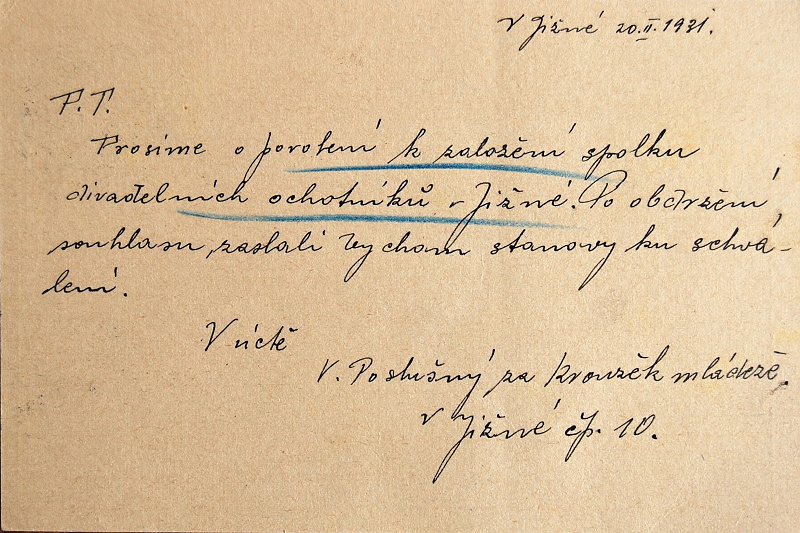 V Jižné 20.II.1931.
P.T.
Prosíme o povolení k založění spolku
divadelních ochotníků v Jižné. Po obdržění
souhlasu, zaslali bychom stanovy ku schvá-
lení.
V úctě
V. Poslušný za Krouzěk mládezě
v Jižné čp. 10.